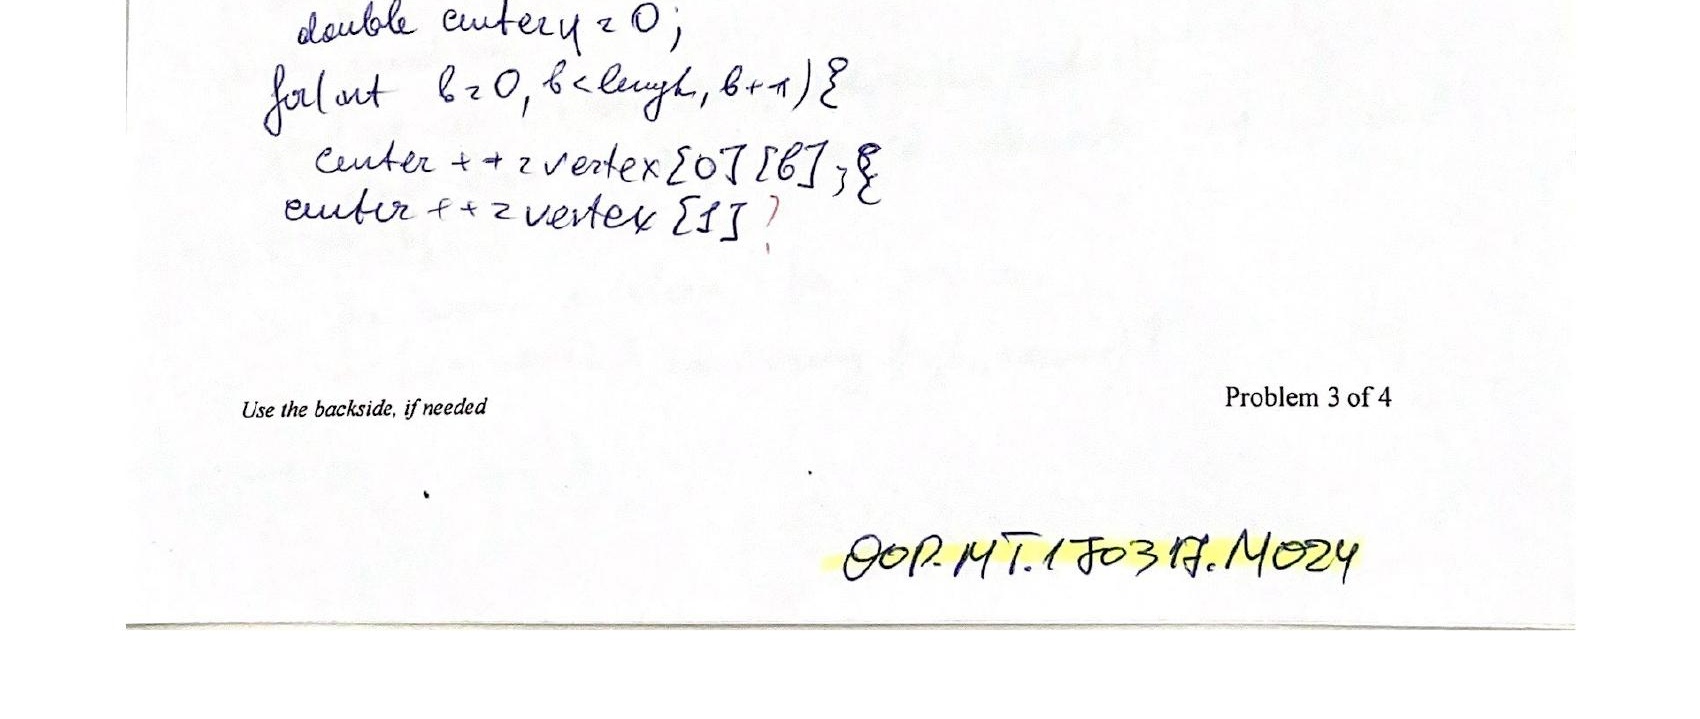 double centery = 0;
for(int b=0, b<length, b++){
center ++ = vertex[0][b];}
center ++ = vertex [1] ?
Use the backside, if needed
Problem 3 of 4
OOP.MT.170317.M024